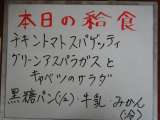 本日の給食
チキントマトスパゲッティ
グリーンアスパラガスと
キャベツのサラダ
黒糖パン(1/2) 牛乳 みかん
(冷)